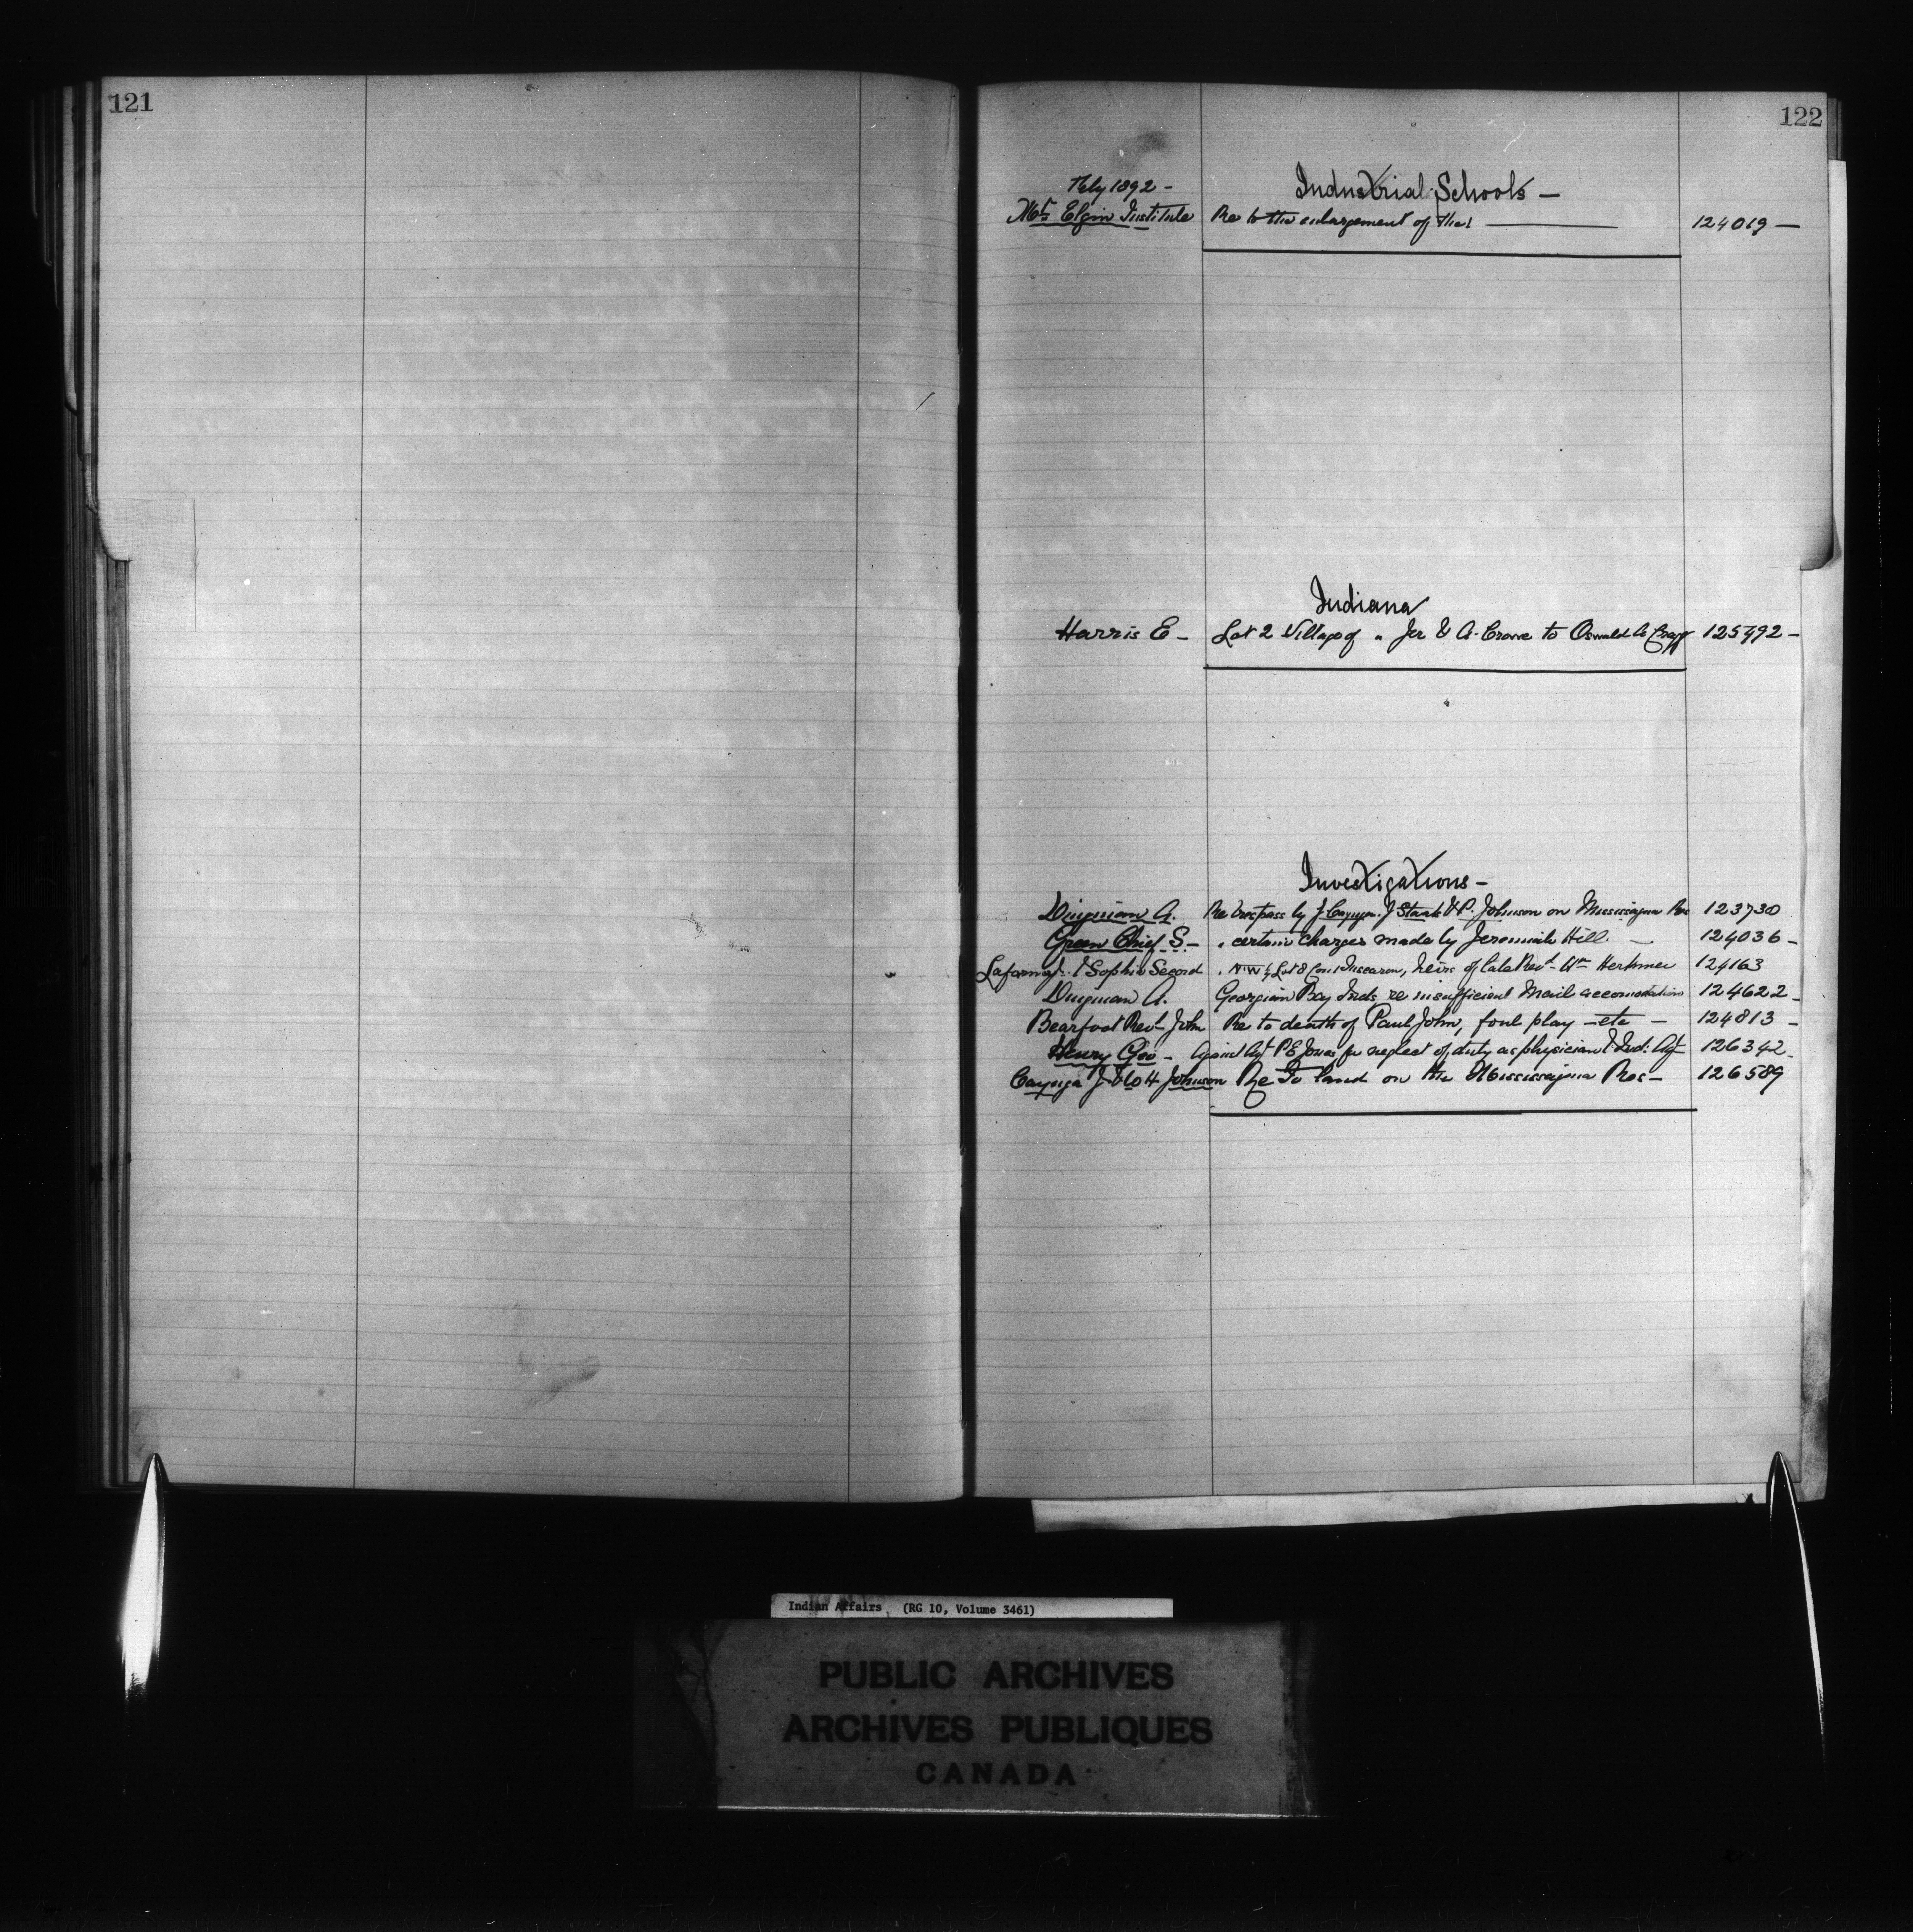 121
122
Feby 1892 -
Industrial Schools -
Mt Elgin Institute Re to the enlargement of the 124019 -
Indiana
Harris E - Lot 2 Village of " for E A. Crowe to Oswald A 125492 -
Investigations -
Dingman A. Re trespass by J. Cayuga. J Staats & P. Johnson on Mississagua Res 123730
Green Chief S - " certain charges made by Jeremiah Hill. - 124036 -
& Sophie Secord " N.W ¼ Lot 8 Con 1 Tuscarora, heirs of late Revd Wm Herkimer 124163
Dingman A. Georgian Bay Inds re insufficient Mail accomodation 124622 -
Bearfoot Revd John Re to death of Paul John, foul play - etc - 124813 -
Henry Geo - Against Agt P E Jones for neglect of duty as physician & Ind: Agt 126342 -
Cayuga J. & H Johnson Re To land on the Mississagua Res - 126589
Indian Affairs (RG 10, Volume 3461)
PUBLIC ARCHIVES
ARCHIVES PUBLIQUES
CANADA